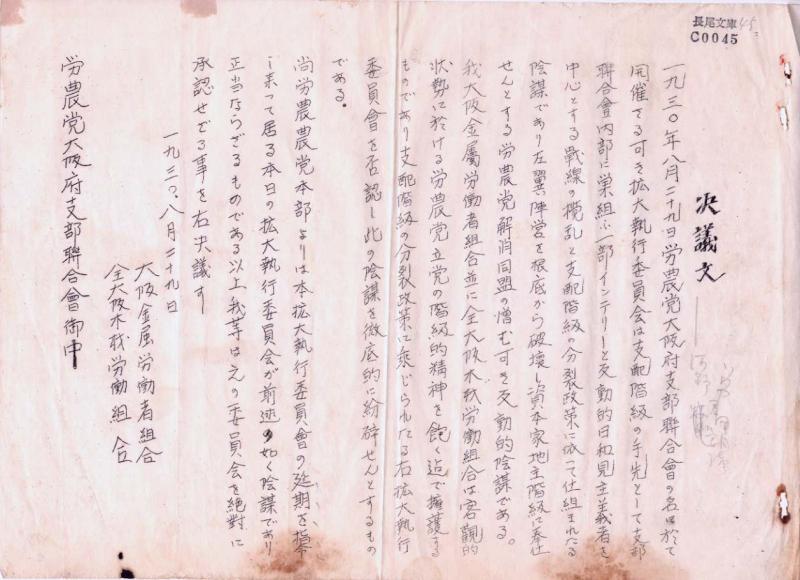 長尾文庫
C0045
45
決議文
一九三〇年八月二十九日労農党大阪府支部聯合會の名に於て
開催さる可き拡大執行委員会は支配階級の手先として支部
聯合會内部に巣組ふ一部インテリーと反動的日和見主義者を
中心とする戦線の攪乱と支配階級の分裂政策に依って仕組まれたる
陰謀であり左翼陣営を根底から破壊し資本家地主階級に奉仕
せんとする労農党解消同盟の憎む可き反動的陰謀である。
我大阪金属労働者組合並に全大阪木材労働組合は客観的
状勢に於ける労農党立党の階級的精神を飽く迄で擁護する
ものであり支配階級の分裂政策に乗じられたる右拡大執行
委員會を否認し此の陰謀を徹底的に紛砕せんとするもの
である。
尚労農農党本部よりは本拡大執行委員會の延期を指令
し来って居る本日の拡大執行委員会が前述の如く陰謀であり
正当ならざるものである以上我等はえの委員会を絶対に
承認せざる事を右決議す
一九三〇、八月二十九日
大阪金属労働者組合
全大阪木材労働組合
労農党大阪府支部聯合會御中